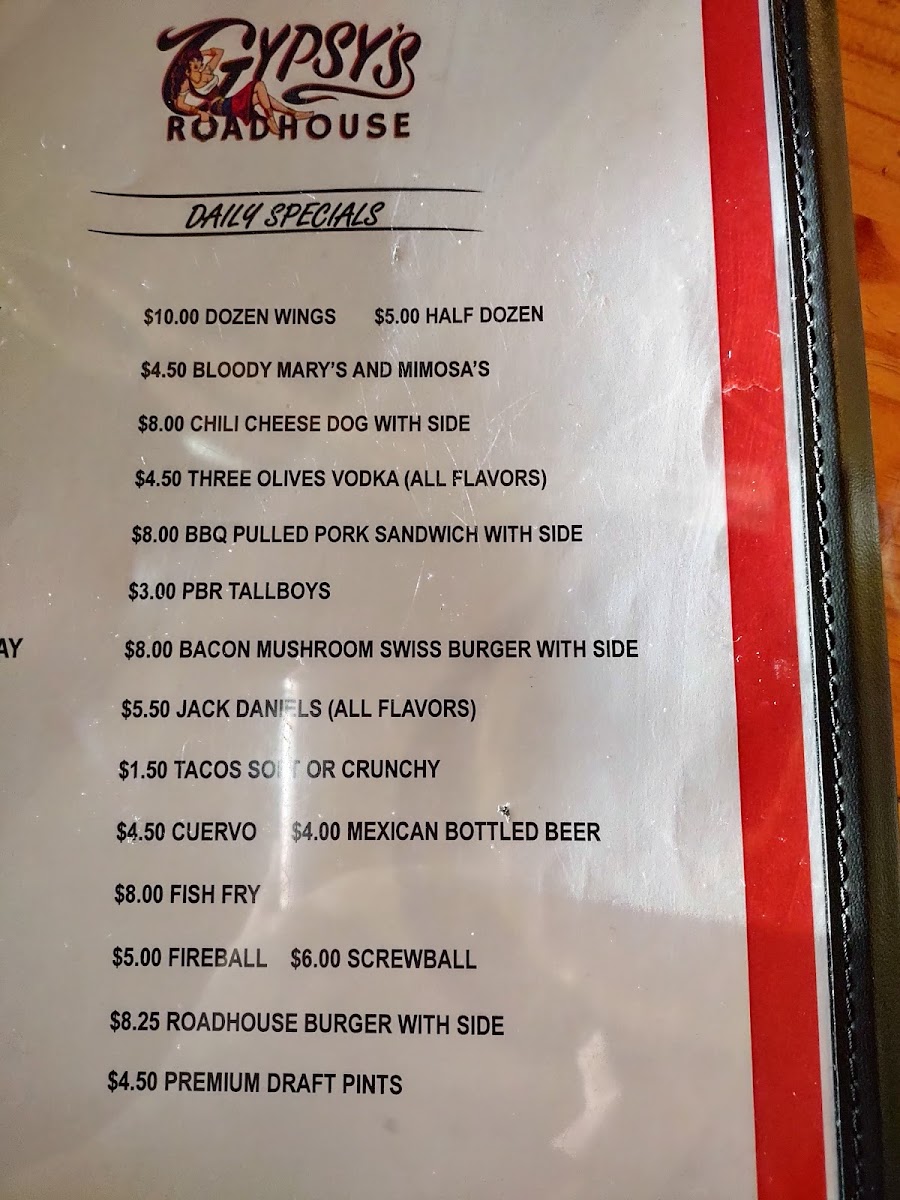 GYPSY'S
ROADHOUSE
DAILY SPECIALS
$10.00 DOZEN WINGS $5.00 HALF DOZEN
$4.50 BLOODY MARY'S AND MIMOSA'S
$8.00 CHILI CHEESE DOG WITH SIDE
$4.50 THREE OLIVES VODKA (ALL FLAVORS)
$8.00 BBQ PULLED PORK SANDWICH WITH SIDE
$3.00 PBR TALLBOYS
AY $8.00 BACON MUSHROOM SWISS BURGER WITH SIDE
$5.50 JACK DANIELS (ALL FLAVORS)
$1.50 TACOS SOFT OR CRUNCHY
$4.50 CUERVO $4.00 MEXICAN BOTTLED BEER
$8.00 FISH FRY
$5.00 FIREBALL $6.00 SCREWBALL
$8.25 ROADHOUSE BURGER WITH SIDE
$4.50 PREMIUM DRAFT PINTS